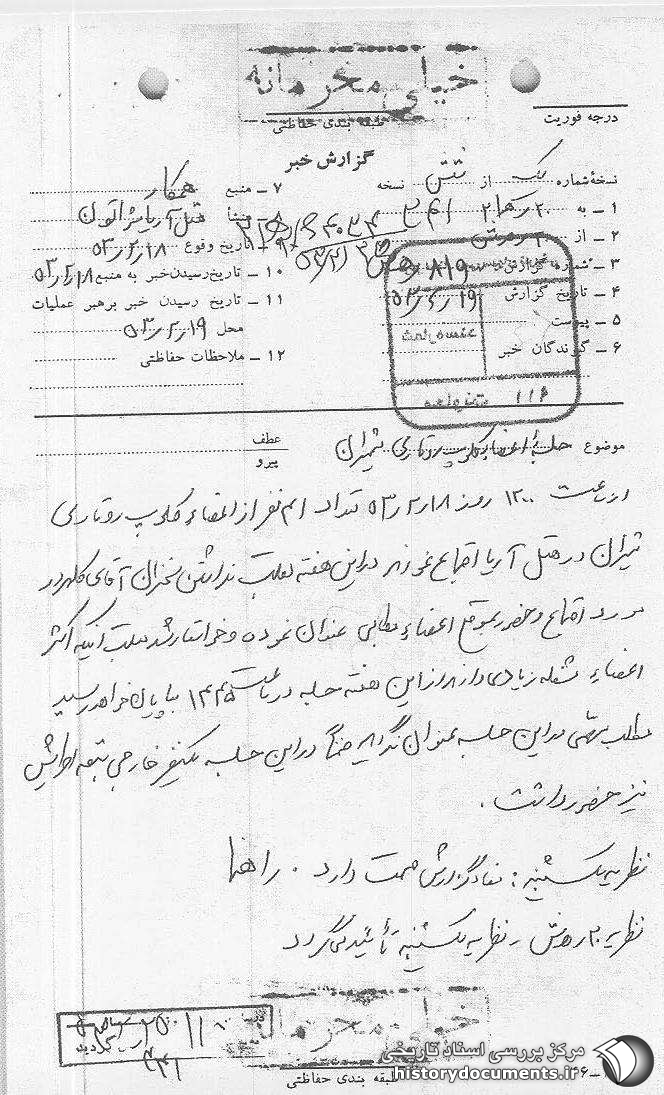 خیلی محرمانه
طبقه بندی حفاظتی
درجه فوریت
گزارش خبر
نسخهٔ شماره یک از نسخه
۱ – به
۲ – از
۳ – شماره گزارش
۴ – تاریخ گزارش ۵۳٫۲٫۱۹
۵ – پیوست
۶ – گیرندگان خبر
۷ – منبع همکار
۸ – منشأ هتل آریا شراتون
۹ – تاریخ وقوع ۵۳٫۲٫۱۸
۱۰ – تاریخ رسیدن خبر به منبع ۵۳٫۲٫۱۸
۱۱ – تاریخ رسیدن خبر برهبر عملیات
محل ۵۳٫۲٫۱۹
۱۲ – ملاحظات حفاظتی
موضوع جلسهٔ اعضاء کلوپ روتاری شمیران
عطف
پیرو
از ساعت ۱۳۰۰ روز ۵۳٫۲٫۱۸ تعداد نفر از اعضاء کلوپ روتاری
شمیران در هتل آریا اجتماع نمودند در این هفته بعلت نداشتن سخنران آقای
مورد اجتماع و حضور بموقع اعضاء مطالبی عنوان نموده و خواستار شد بعلت اینکه اکثر
اعضاء مشغله زیادی دارند از این هفته جلسه در ساعت ۱۴۴۵ بپایان خواهد رسید
مطلب مهمی در این جلسه عنوان نگردید ضمناً در این جلسه یکنفر خارجی تبعه
نیز حضور داشت .
نظریه یکشنبه : مفاد گزارش صحت دارد . راهنما
نظریه ۲۰ نظریه یکشنبه تأئید میگردد
خیلی محرمانه
طبقه بندی حفاظتی
مرکز بررسی اسناد تاریخی
historydocuments.ir